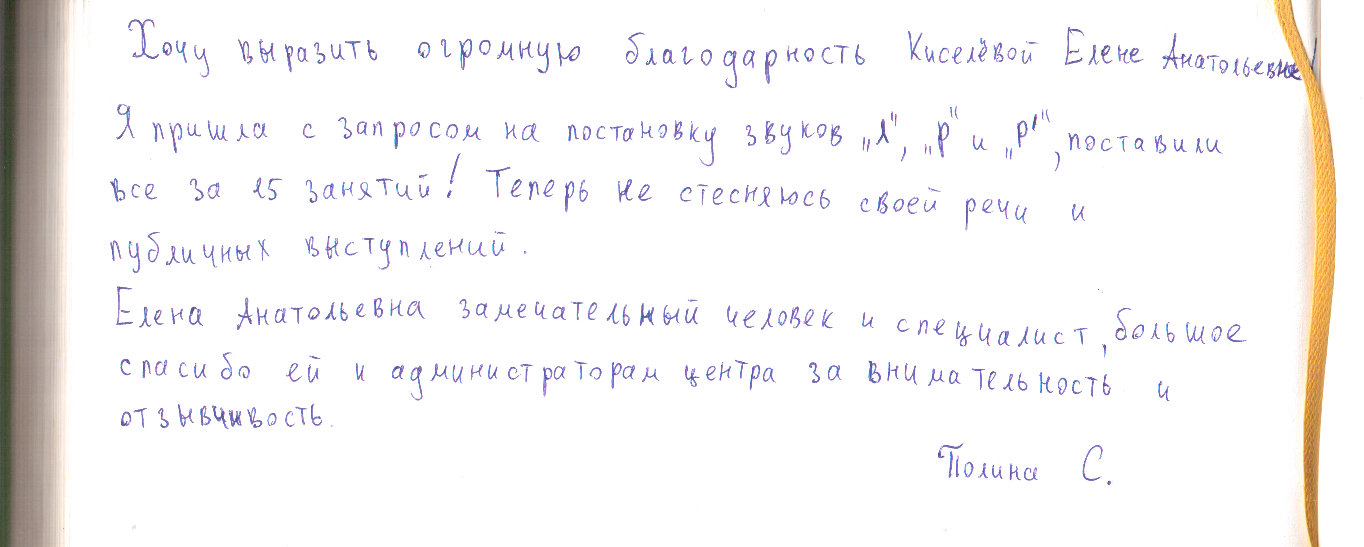 Хочу выразить огромную благодарность Киселёвой Елене Анатольевне!
Я пришла с запросом на постановку звуков „л", „р" и „р'", поставили
все за 15 занятий! Теперь не стесняюсь своей речи и
публичных выступлений.
Елена Анатольевна замечательный человек и специалист, большое
спасибо ей и администраторам центра за внимательность и
отзывчивость.
Полина С.